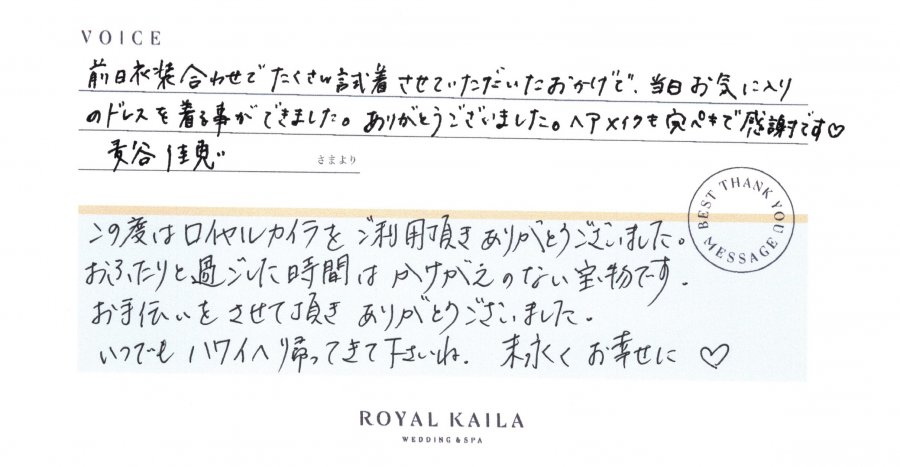 VOICE
前日衣装合わせでたくさん試着させていただいたおかげで、当日お気に入り
のドレスを着る事ができました。ありがとうございました。ヘアメイクも完ペキで感謝です♡
谷佳恵 さまより
BEST THANK YOU MESSAGE
この度はロイヤルカイラをご利用頂きありがとうございました。
おふたりと過ごした時間はかけがえのない宝物です.
お手伝いをさせて頂きありがとうございました.
いつでもハワイへ帰ってきて下さいね. 末永くお幸せに♡
ROYAL KAILA
WEDDING & SPA